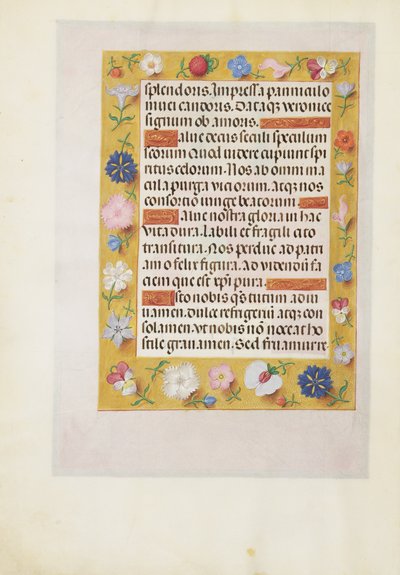 splendoris. Impressa panniculo
nivei candoris. Dataq̃ veronice
signum ob amoris.
Salve decus seculi speculum
sc̃orum Quod videre cupiunt spi
ritus celorum. Nos ab omni ma
cula purga viciorum. atq̃ nos
consortio iunge beatorum.
Salve nostra gloria in hac
vita dura. Labili et fragili cito
transitura. Nos perduc ad patri
am o felix figura. ad videndũ fa
ciem que est xp̃i pura.
Esto nobis q̃s tutum adiu
vamen. dulce refrigeriũ atq̃ con
solamen. vt nobis nõ noceat ho
stile gravamen. Sed fruamur re⸗